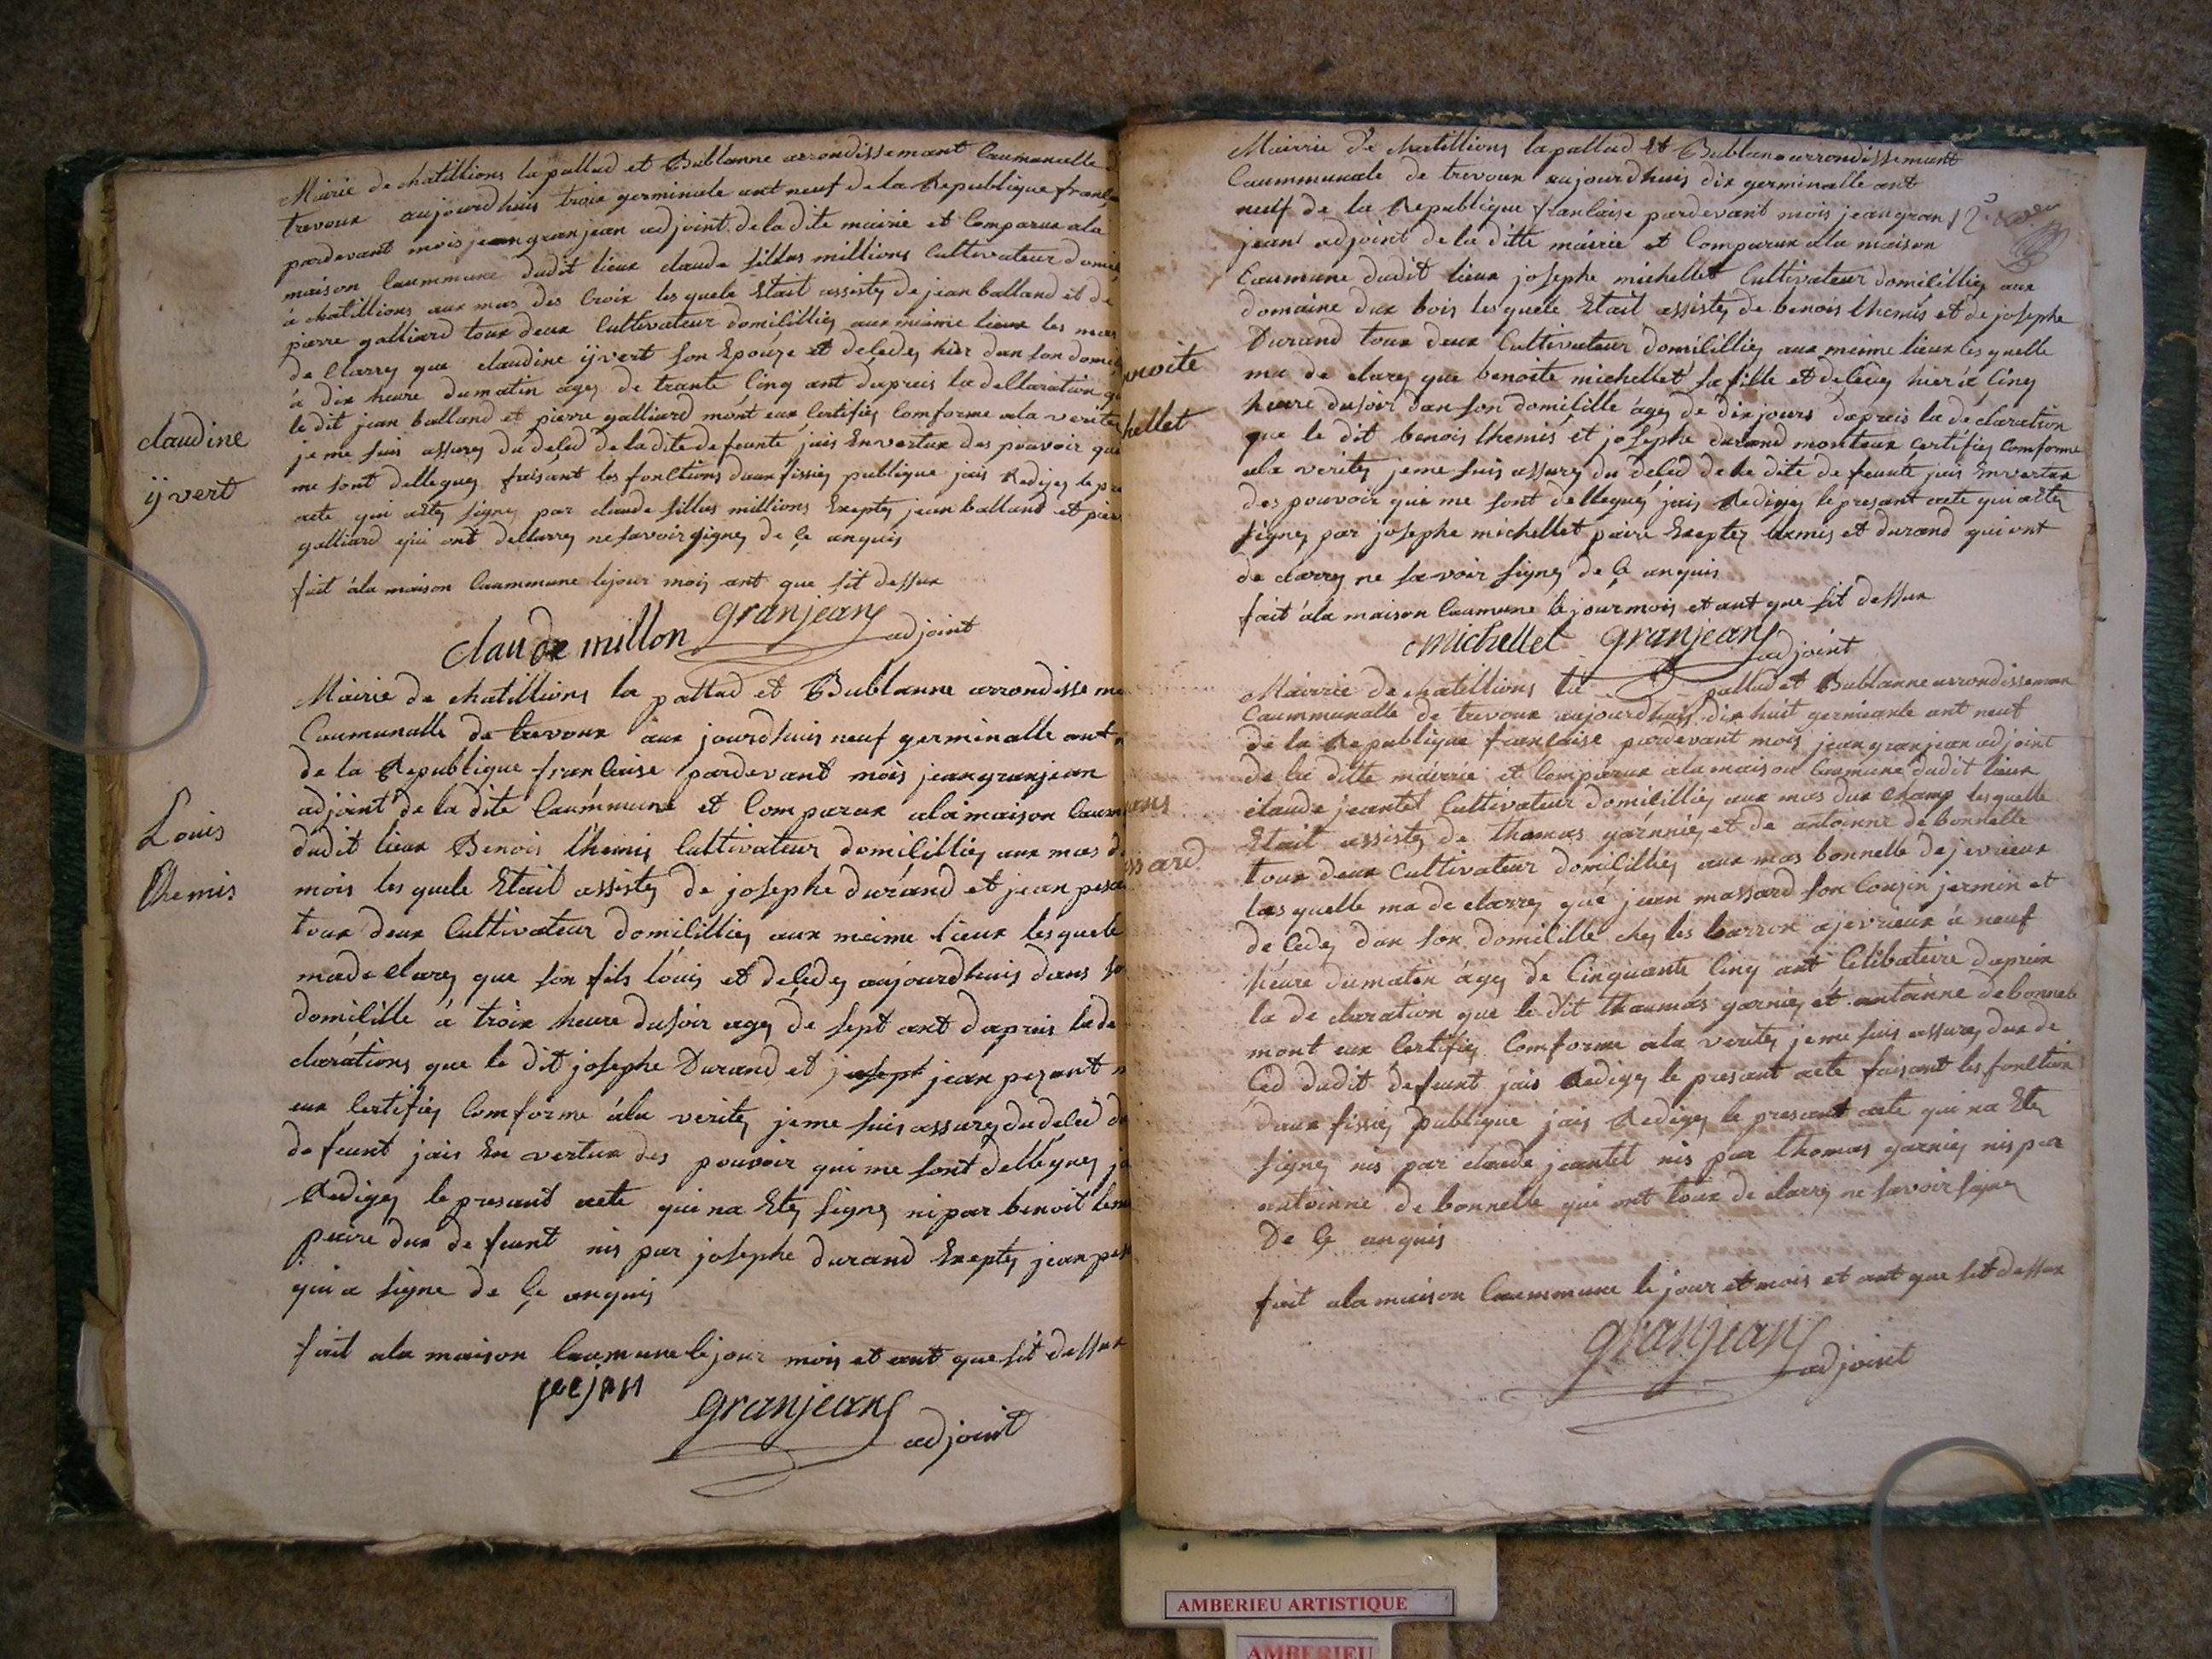 Mairie de chatillions la pallud et Bublanne arrondissemant Caumunalle
trevoux aujourdhuis troix germinale ant neuf de la Republique franca
pardevant mois jean granjean adjoint de la dite mairie et Comparux ala
maison Caummune dudit lieux claude fillus millions Cultivateur domi
à chatillions aux mas des Croix les quele Etait assistez de jean balland et de
pierre galliard toux deux Cultivateur domicilliez aux meime lieux les
de Clarrez que claudine ÿvert son Epouze et decedez hier dan son domi
à dix heure dumatin agez de trante Cinq ant daprais la declaration
le dit jean balland et pierre galliard mont eux Certifiez Comforme ala veritez
je me suis assurez du deced de la dite defeunte jais En vertux des pouvoir que
me sont delleguez faisant les fonctions daux fissiez publique jais Redigez le pre
acte qui aétez signez par claude fillus millions Exeptez jean balland et pier
galliard qui ont dellarrez ne savoir signez de Ce anquis
fait àla maison Caummune lejour mois ant que sit dessux
claude millon granjean adjoint
claudine
ÿvert
Mairie de chatillions la pallud et Bublanne arrondisse me
Caumunalle de trevoux aux jourdhuis neuf germinalle ant
de la Republique francaise pardevant mois jean granjean
adjoint de la dite Caummune et Comparux ala maison Caum
dudit lieux Benois Chemis Cultivateur domicilliez aux mas
mois les quele Etait assistez de josephe durand et jean pesa
toux deux Cultivateur domicilliez aux meime lieux les quele
made Clarez que son fils louis et decedez aujourdhuis dans so
domicille à troix heure du soir agez de sept ant daprais la de
clarations que le dit josephe Durand et joseph jean pezant
eux Certifiez Comforme àla veritez je me suis assurez du deced
defeunt jais En vertux des pouvoir qui me sont delleguez
Redigez le presant acte qui na Etez signez ni par benoit
paire dux defeunt nis par josephe durand Exeptez jean
qui a signe de Ce anquis
fait ala maison Caumune lejour mois et ant que sit dessux
pejan granjean adjoint
Louis
Chemis
Mairrie de chatillions la pallud Et Bublane arrondissemant
Caummunale de trevoux aujourdhuis dix germinalle ant
neuf de la Republique francaise pardevant mois jean gran
jean adjoint de la ditte mairie et Comparux ala maison
Caumune dudit lieux josephe michellet Cultivateur domicilliez aux
domaine dux bois les quele Etait assistez de benois Chemis et de josephe
Durand toux deux Cultivateur domicilliez aux meime lieux les quelle
ma de clarez que benoite michellet sa fille et decedez hier à Cinq
heure dusoir dan son domicille àgez de dix jours daprais la declaration
que le dit benois Chemis et josephe durand monteux Certifiez Comforme
ala veritez jeme suis assurez du deced de la dite defeunte jais En vertux
des pouvoir qui me sont delleguez jais Redigez le presant acte qui aétez
signez par josephe michellet paire Exeptez chemis et durand qui ont
de clarrez ne savoir signez de Ce anquis
fait àla maison Caumune le jour mois et ant que sit dessux
michellet granjean adjoint
noite
hellet
Mairrie de chatillions la pallud et Bublanne arrondisseman
Caummunalle de trevoux aujourdhuis dix huit germinale ant neuf
de la Republique francaise pardevant mois jean granjean adjoint
de la ditte mairrie et Comparux ala maison Caumune dudit lieux
claude jeantet Cultivateur domicilliez aux mas dux champ les quelle
Etait assistez de thomas garnniez et de antoinne de bonnelle
toux deux Cultivateur domicilliez aux mas bonnelle dejevrieux
las quelle ma de clarrez que jean massard son Couzin jermin et
decedez dan son domicille chez les barron ajevrieux à neuf
heure dumatin àgez de Cinquante Cinq ant Celibataire daprais
la de claration que le dit thaumas garniez et antoinne debonnele
mont eux Certifiez Comforme ala veritez jeme suis assurez dux de
Ced dudit defeunt jais Redigez le presant acte faisant les fonction
daux fissiez publique jais Redigez le presant acte qui na Etez
signez nis par claude jeantet nis par thomas garniez nis par
antoinne debonnelle qui ont toux de clarrez ne savoir signez
De Ce anquis
fait ala maison Caummune le jour et mois et ant que sit dessux
granjean adjoint
ans
ssard
AMBERIEU ARTISTIQUE
AMBERIEU